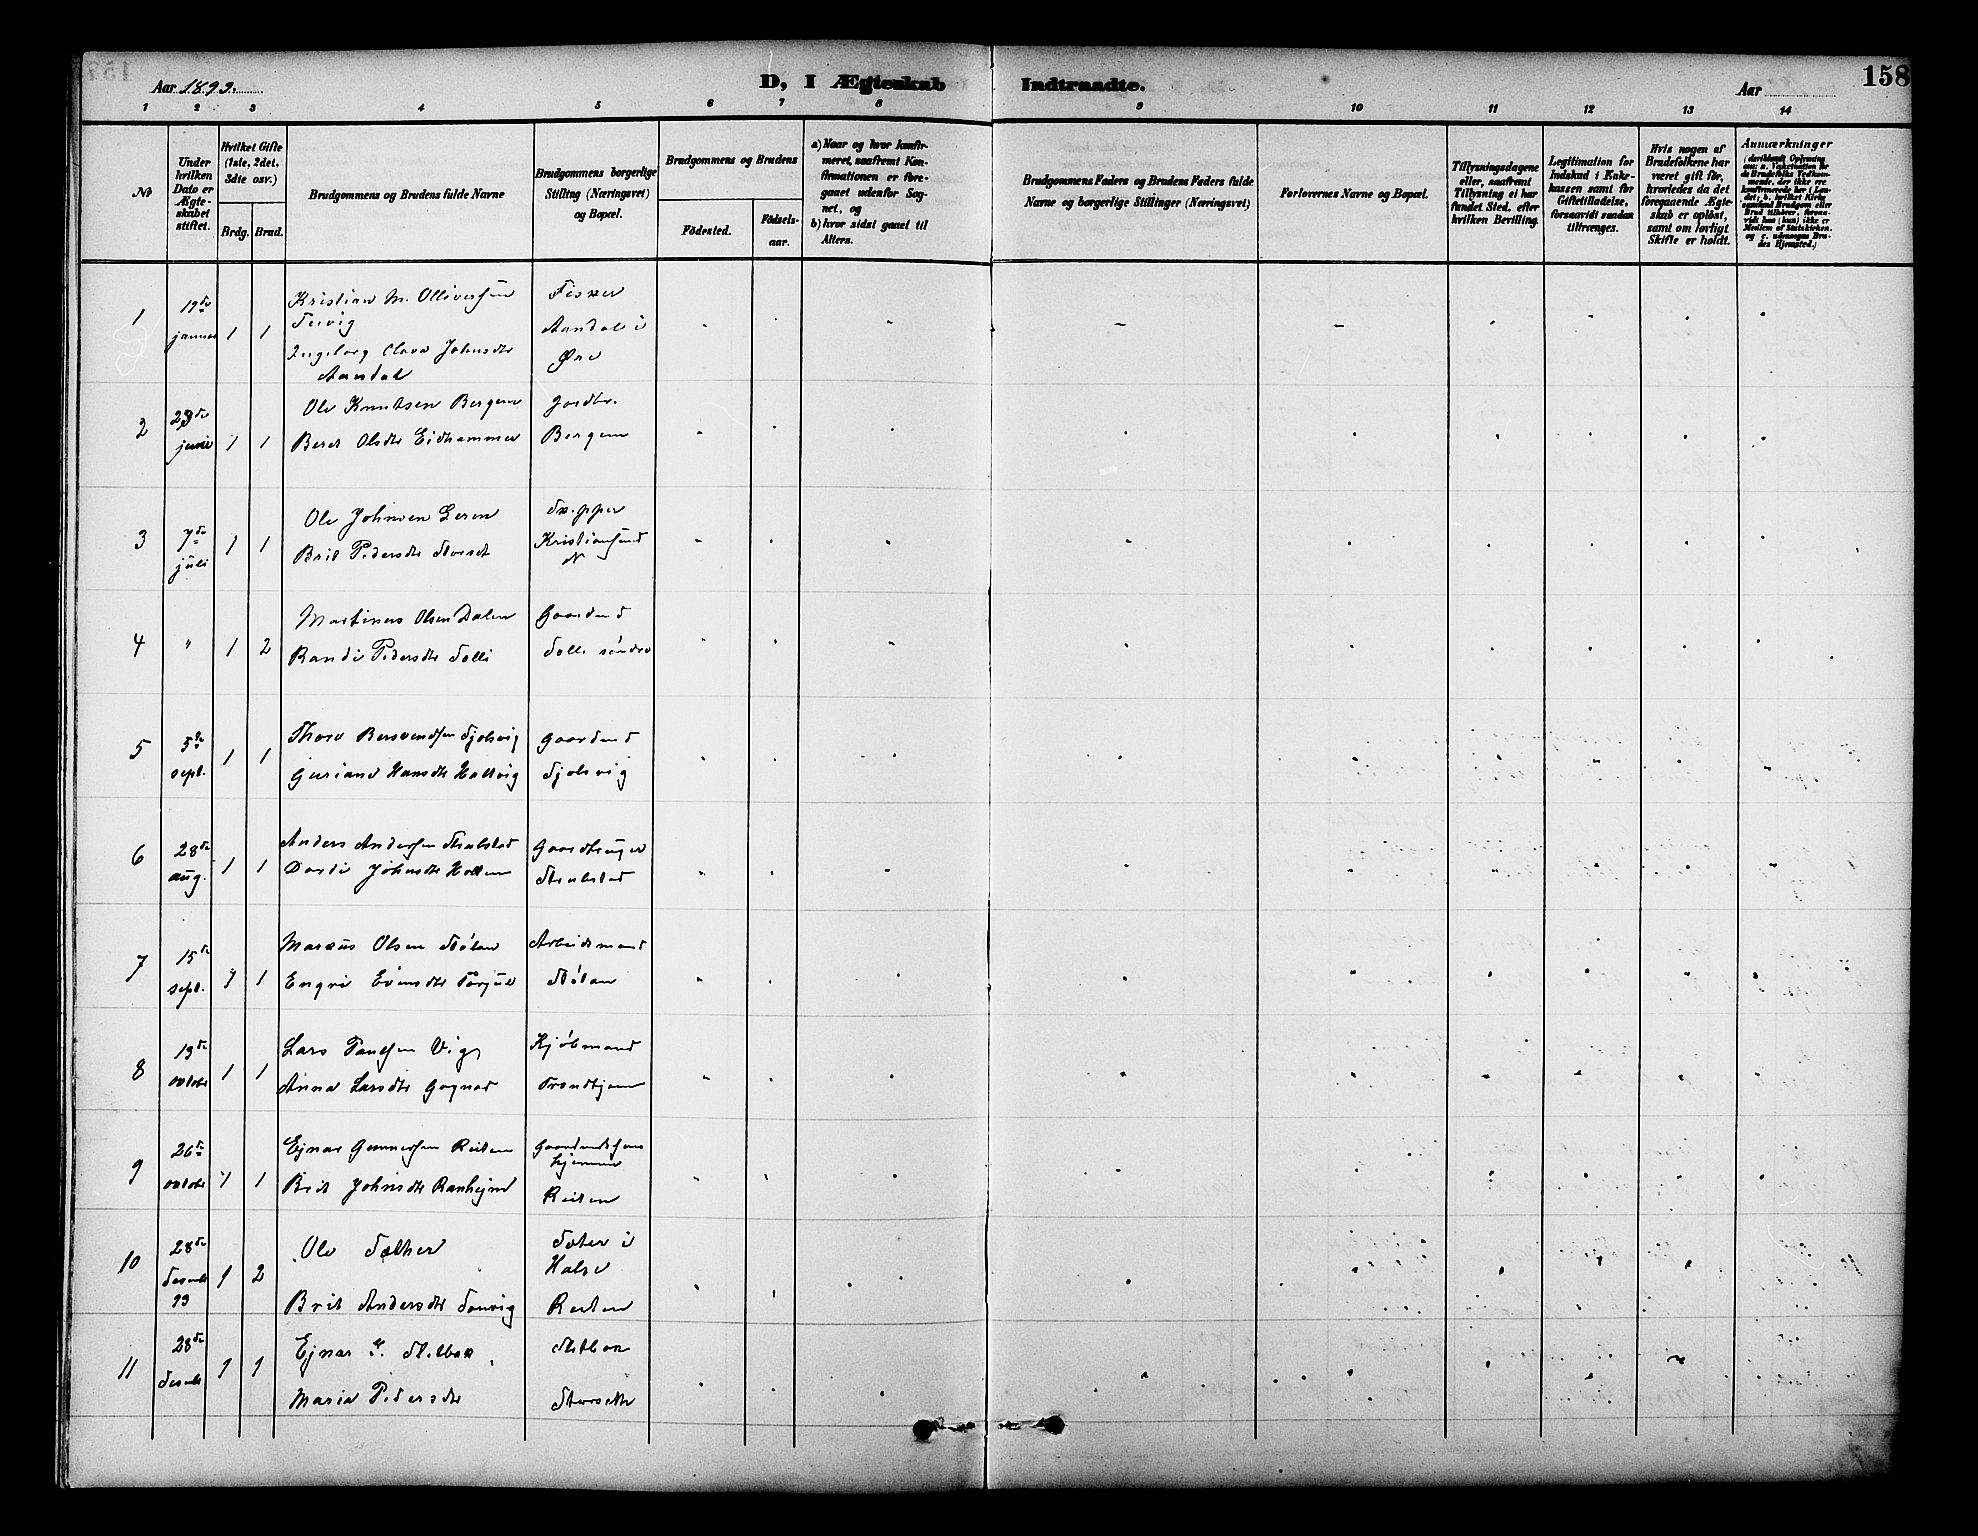 158
Aar 1893.
D, I Ægteskab Indtraadte.
Aar
1 2 3 4 5 6 7 8 9 10 11 12 13 14
No
Under hvilken Dato er Ægteskabet stiftet.
Hvilket Gifte (1ste, 2det, 3dte osv.)
Brdg. Brud.
Brudgommens og Brudens fulde Navne
Brudgommens borgerlige Stilling (Næringsvei) og Bopæl.
Brudgommens og Brudens
Födested.
Födselsaar.
a) Naar og hvor konfirmeret, saafremt Konfirmationen er foregaaet udenfor Sognet, og
b) hvor sidst gaaet til Alters.
Brudgommens Faders og Brudens Faders fulde Navne og borgerlige Stillinger (Næringsvei)
Forlovernes Navne og Bopæl.
Tillysningsdagene eller, saafremt Tillysning ei har fundet Sted, efter hvilken Bevilling.
Legitimation for Indskud i Enkekassen samt for Giftetilladelse, forsaavidt saadan tiltrænges.
Hvis nogen af Brudefolkene har været gift för, hvorledes da det foregaaende Ægteskab er oplöst, samt om lovligt Skifte er holdt.
Anmærkninger
1 januar 1 1 Kristian M. Olliversen
Ingeborg Johnsdtr
Aandal
Fisker
Aandal i
Øre
2 juni 1 1 Ole Knutsen Bergem
Beret Olsdtr Eidhammer
Jordbr.
Bergem
3 7de juli 1 1 Ole Johnsen Leren
Brit Pedersdtr Storset
Skipper
Kristiansund
N
4 " 1 2 Martinus Olsen Dalen
Randi Pedersdtr Solli
Gaardmd
Solli söndre
5 5te sept. 1 1 Thore Bersvendsen Sjølsvig
Guriane Hansdtr Holtvig
Gaardmd
Sjølsvig
6 28de aug. 1 1 Anders Andersen
Dordi Johnsdtr Holten
Gaardbruger
7 15de sept. 1 1 Marcus Olsen Stølan
Engri Evensdtr
Arbeidsmand
Stølan
8 19de octobr 1 1 Lars Paulsen Vig
Anna Larsdtr Gagnat
Kjøbmand
Trondhjem
9 26de octobr 1 1 Ejnar Gunnersen Reiten
Brit Johnsdtr Ranhejm
hjemme
Reiten
10 28de desemb 93 1 2 Ole Sæther
Brit Andersdtr
Sæter i
Halse
Reiten
11 28de desemb 1 1 Ejnar
Maria Pedersdtr
Storseth